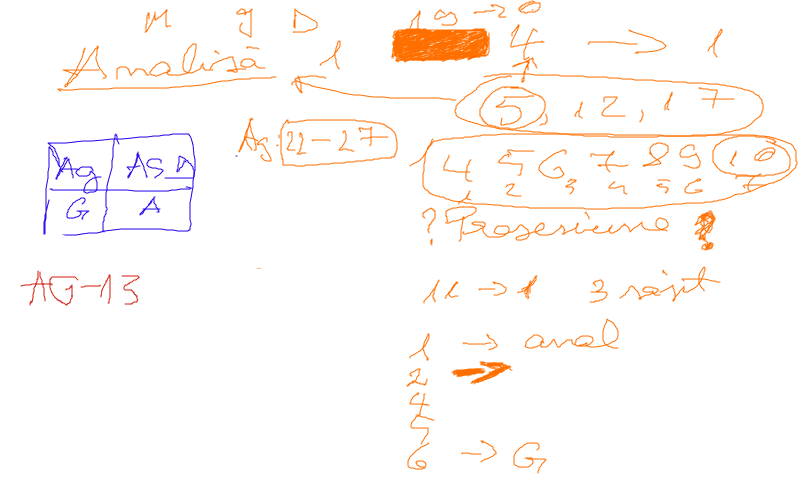 M g D 19 → 20
Analiză 1 4 → 1
5, 12, 17
Ag. 22-27
4 5 6 7 8 9 10
1 2 3 4 5 6 7
Ag ASD
G A
?
AG-13
11 → 1 3 săpt
1 → anal
2 →
4
5
6 → G